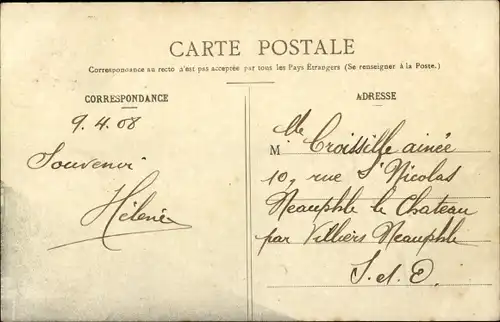 CARTE POSTALE
Correspondance au recto n'est pas acceptée par tous les Pays Etrangers (Se renseigner à la Poste.)
CORRESPONDANCE
9.4.08
Souvenir
Hélène
ADRESSE
Mlle Croissille ainée
10, rue St Nicolas
Neauphle le Chateau
par Villiers Neauphle
S. et O.